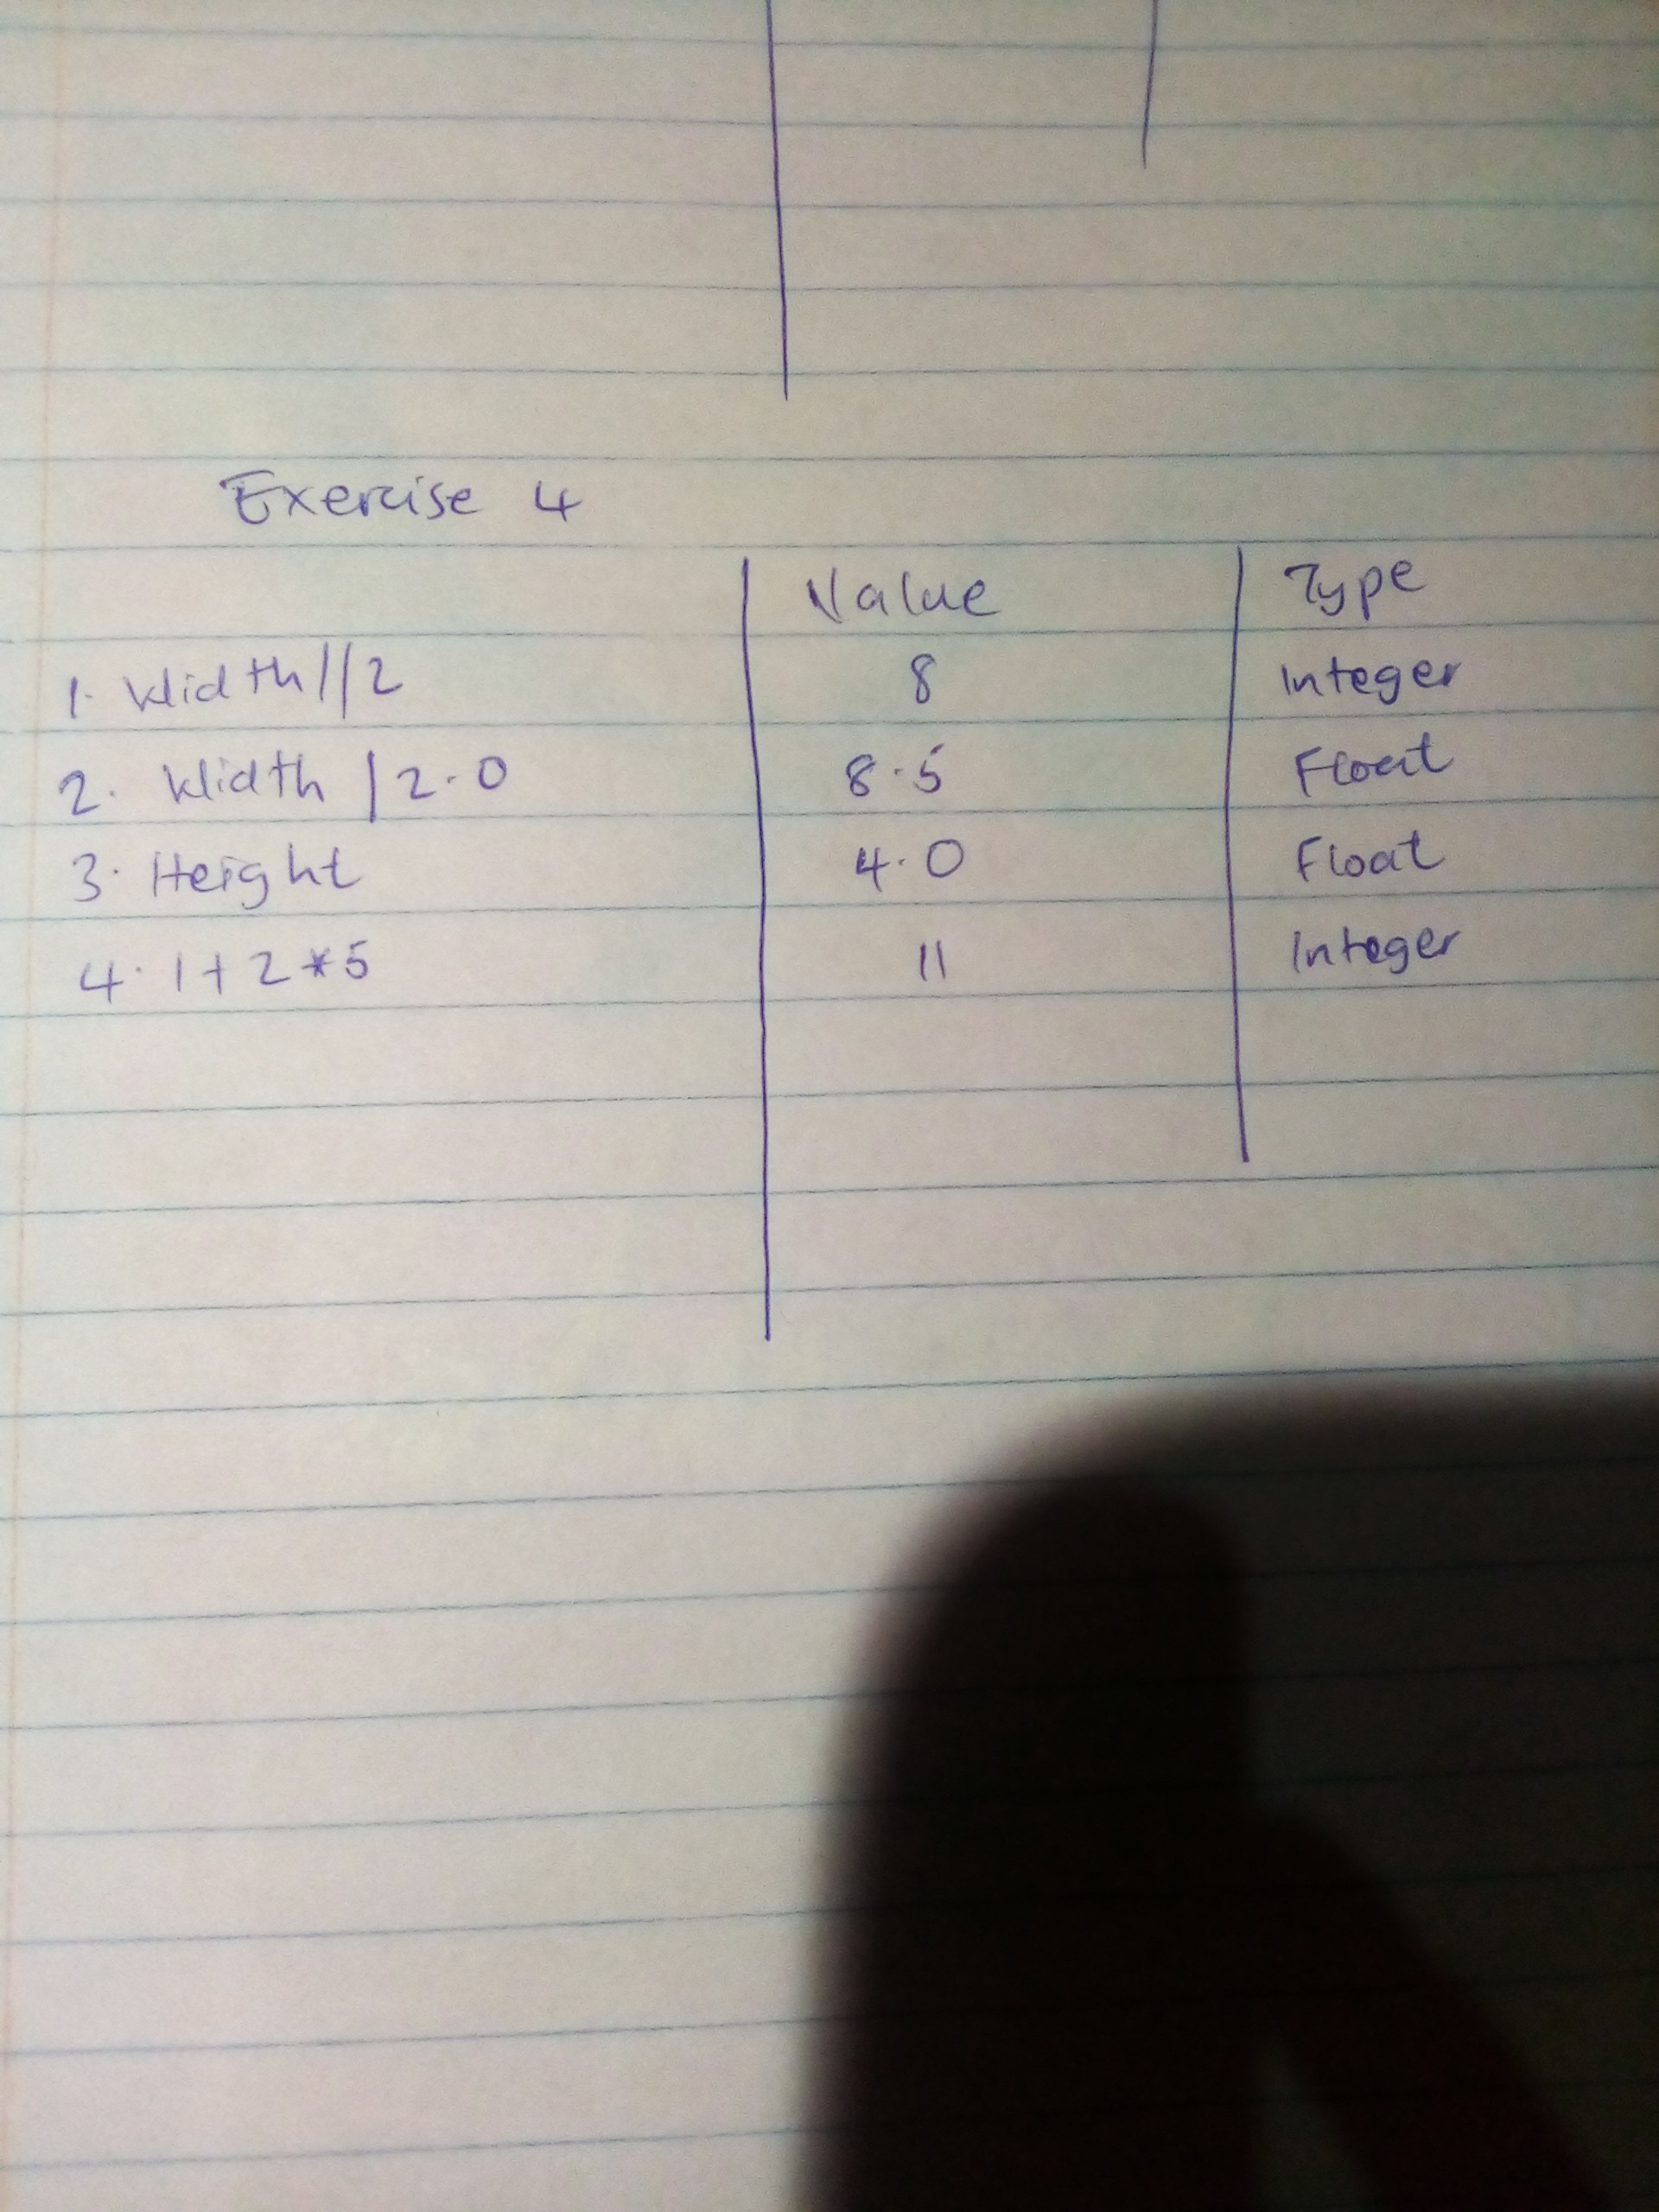 Exercise 4
Value Type
1. Width//2 8 Integer
2. Width /2.0 8.5 Float
3. Height 4.0 Float
4. 1+2*5 11 Integer